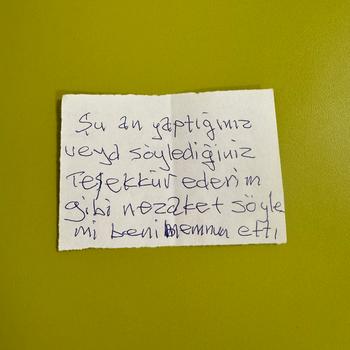 Şu an yaptığınız
veya söylediğiniz
Teşekkür ederim
gibi nezaket söyle
mi beni memnun etti